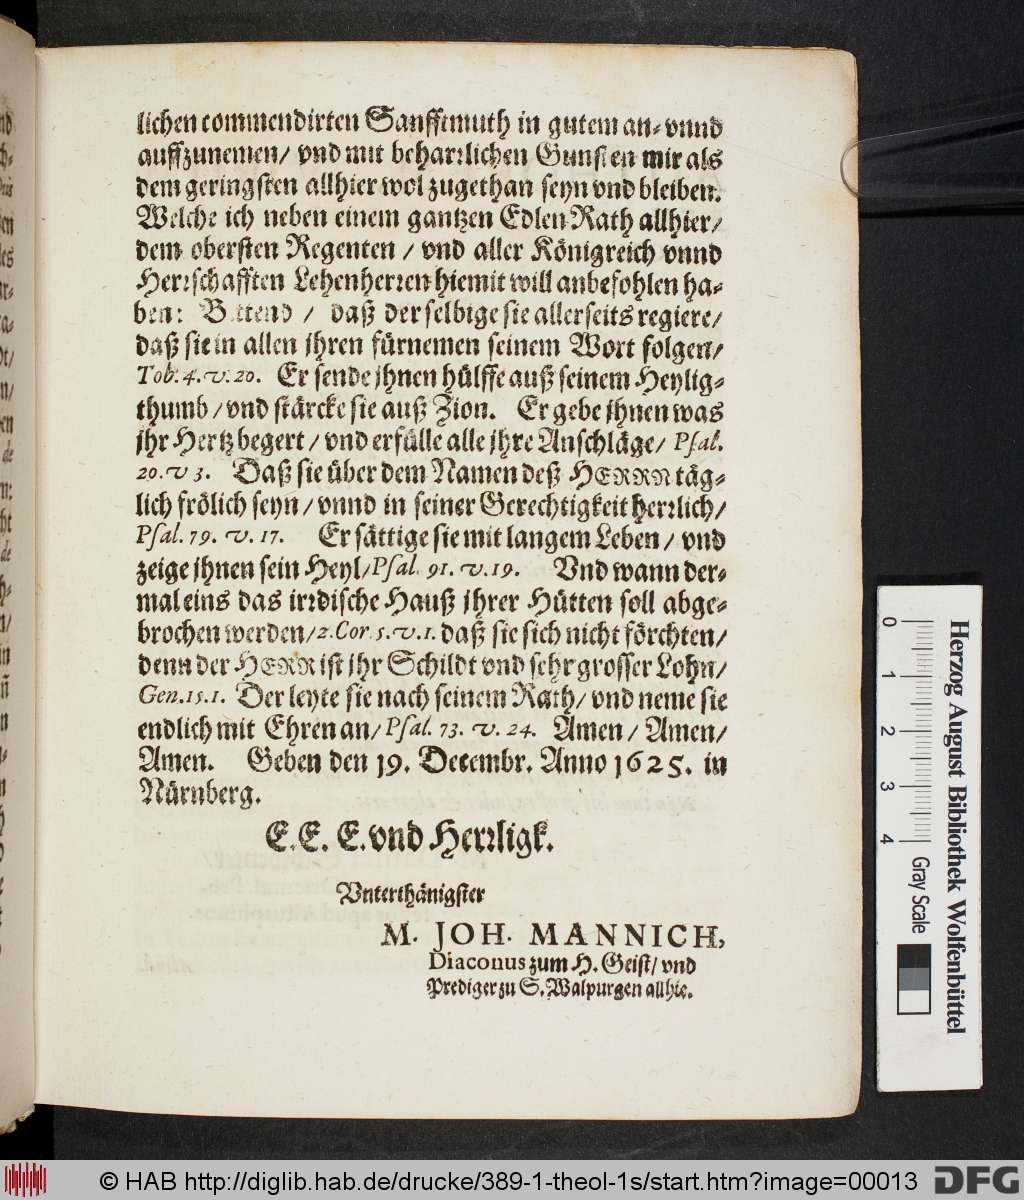 lichen commendirten Sanfftmuth in gutem an- vnnd
auffzunemen/ vnd mit beharrlichen Gunsten mir als
dem geringsten allhier wol zugethan seyn vnd bleiben.
Welche ich neben einem gantzen Edlen Rath allhier/
dem obersten Regenten / vnd aller Königreich vnnd
Herrschafften Lehenherren hiemit will anbefohlen ha-
ben: Bittend / daß derselbige sie allerseits regiere/
daß sie in allen jhren fürnemen seinem Wort folgen/
Tob. 4. v. 20. Er sende jhnen hülffe auß seinem Heylig-
thumb / vnd stärcke sie auß Zion. Er gebe jhnen was
jhr Hertz begert / vnd erfülle alle jhre Anschläge/ Psal.
20. v 3. Daß sie über dem Namen deß HERRN täg-
lich frölich seyn / vnnd in seiner Gerechtigkeit herrlich/
Psal. 79. v. 17. Er sättige sie mit langem Leben / vnd
zeige jhnen sein Heyl/ Psal. 91. v. 19. Vnd wann der-
mal eins das irrdische Hauß jhrer Hütten soll abge-
brochen werden/ 2. Cor. 5. v. 1. daß sie sich nicht förchten/
denn der HERR ist jhr Schildt vnd sehr grosser Lohn/
Gen. 15. 1. Der leyte sie nach seinem Rath/ vnd neme sie
endlich mit Ehren an/ Psal. 73. v. 24. Amen / Amen/
Amen. Geben den 19. Decembr. Anno 1625. in
Nürnberg.
E. E. E. vnd Herrligk.
Vnterthänigster
M. JOH. MANNICH,
Diaconus zum H. Geist/ vnd
Prediger zu S. Walpurgen allhie.
0 1 2 3 4
Gray Scale
Herzog August Bibliothek Wolfenbüttel
© HAB http://diglib.hab.de/drucke/389-1-theol-1s/start.htm?image=00013
DFG